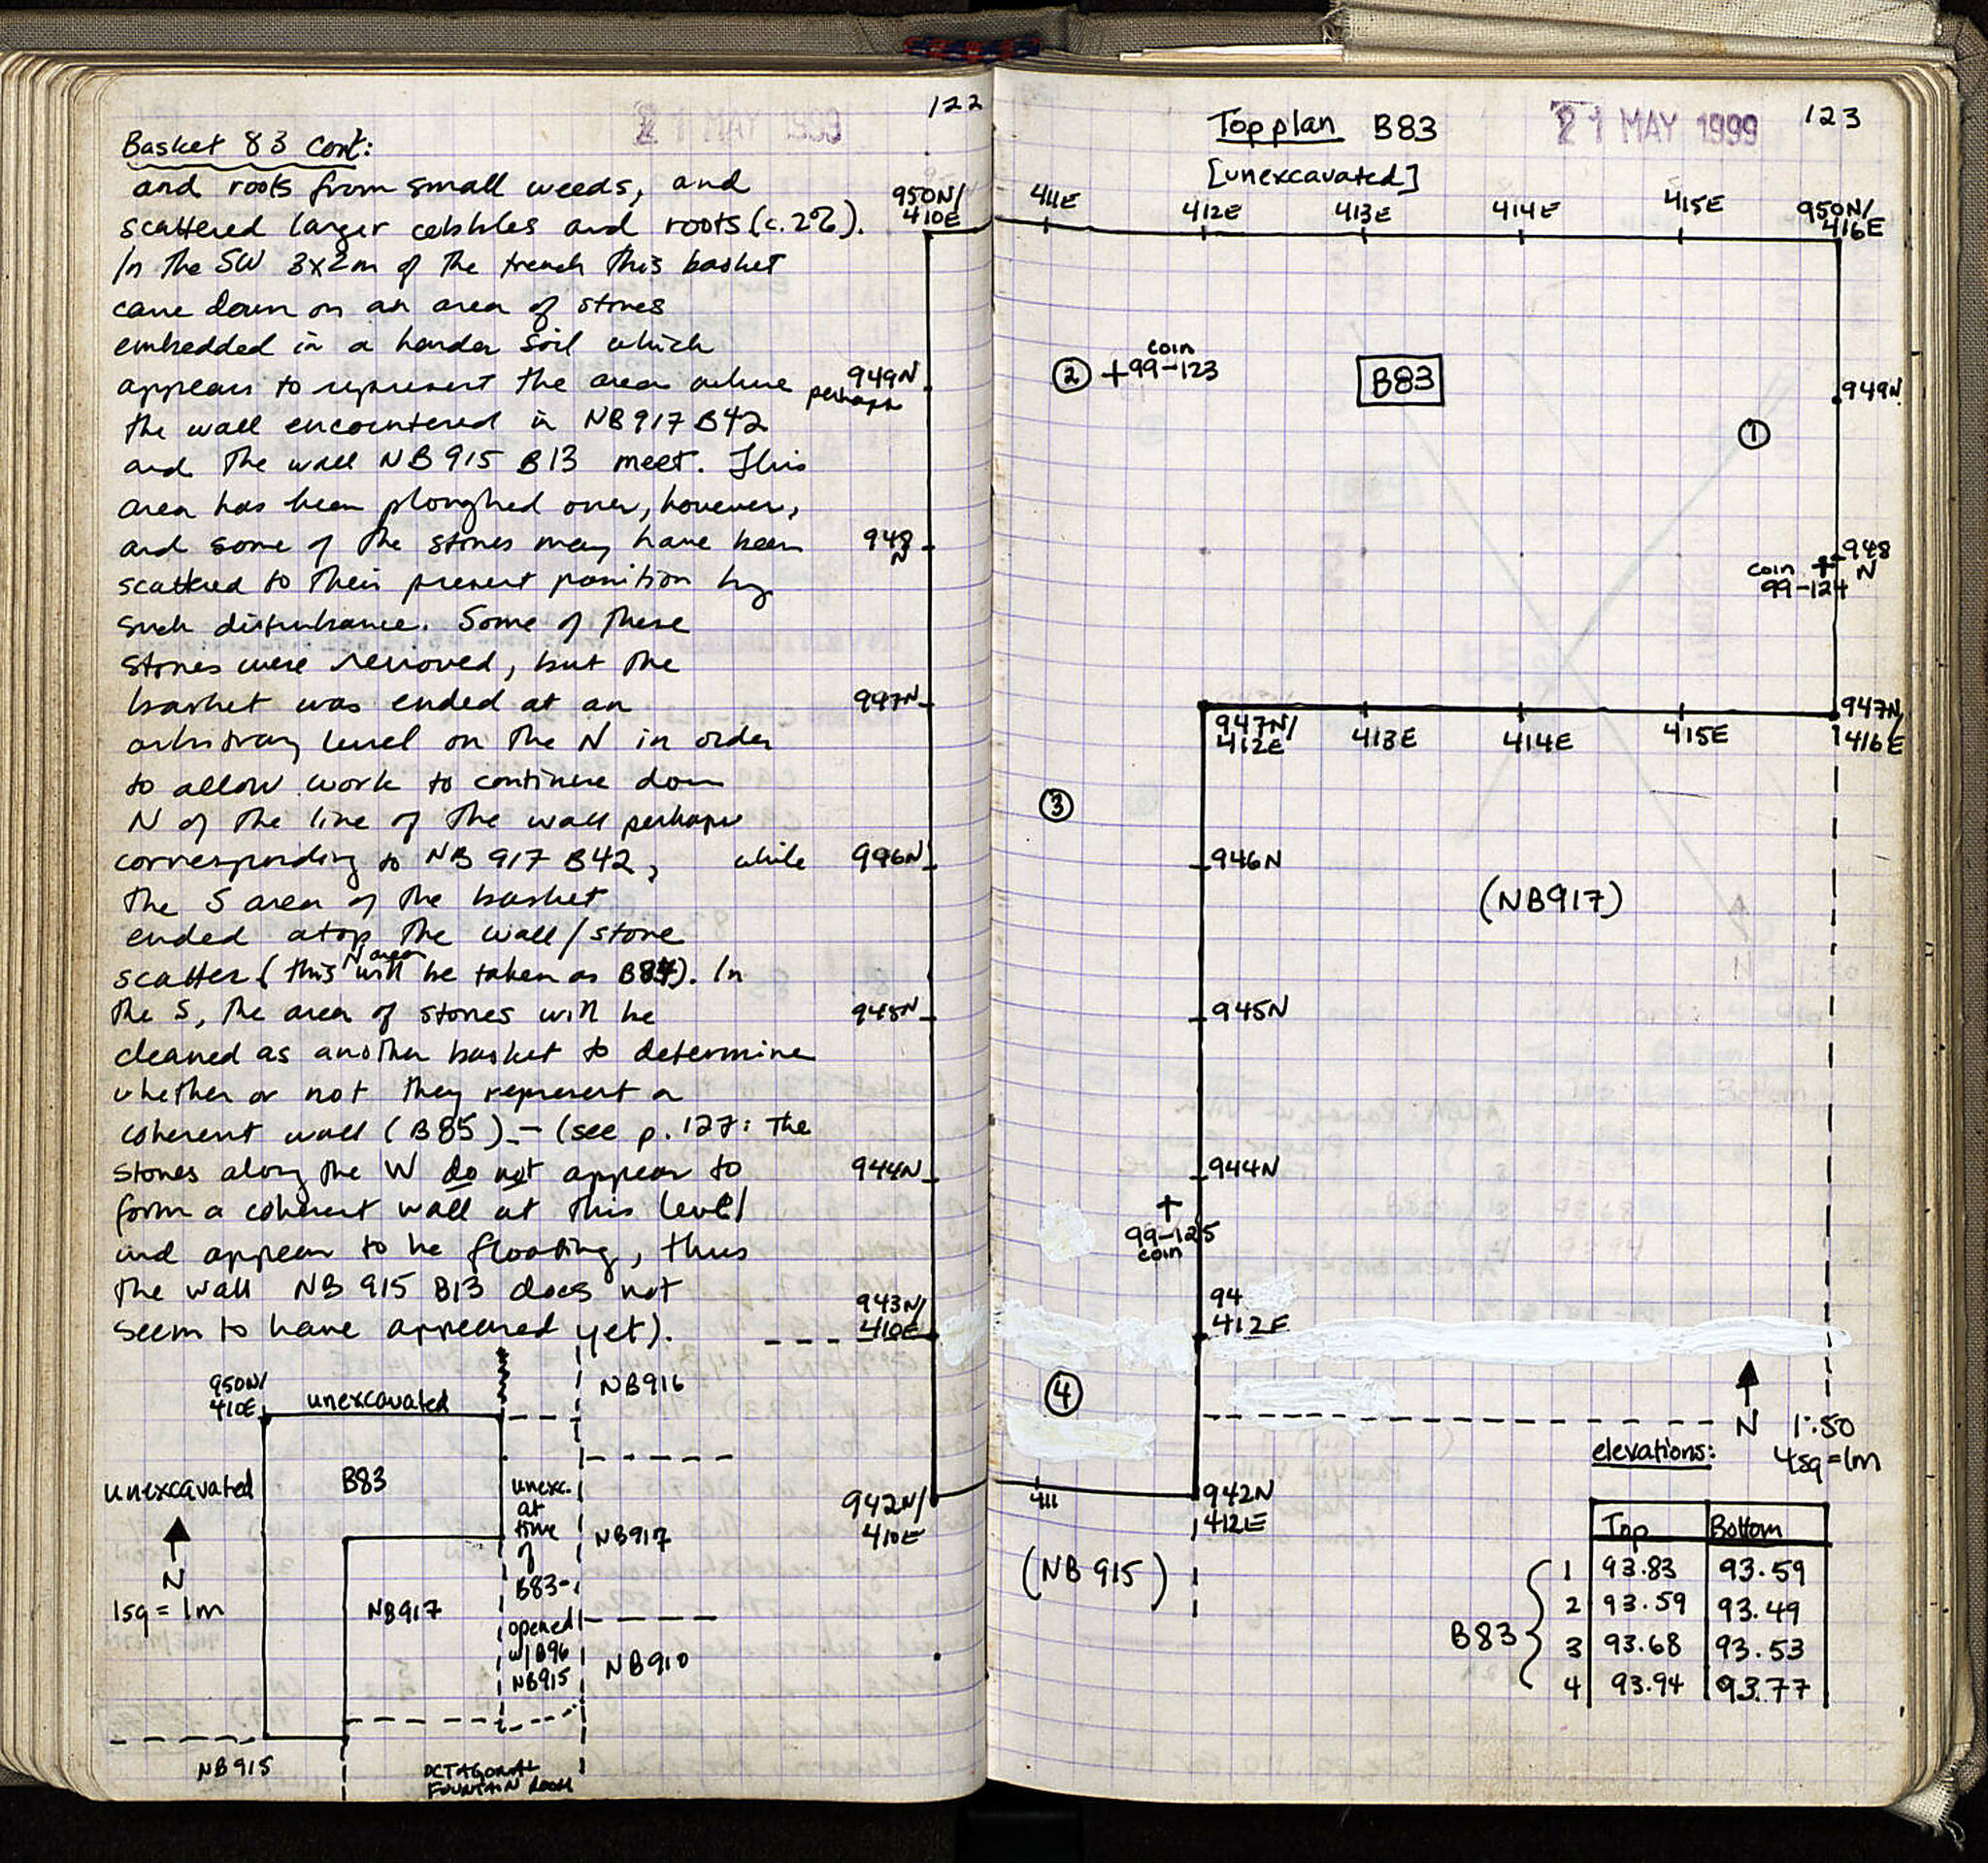 122
21 MAY 1999
Basket 83 cont:
and roots from small weeds, and
scattered larger cobbles and roots (c.2%).
In the SW 3x2m of the trench this basket
came down on an area of stones
embedded in a harder soil which
appears to represent the area where perhaps
the wall encountered in NB917 B42
and the wall NB915 B13 meet. This
area has been ploughed over, however,
and some of the stones may have been
scattered to their present position by
such disturbance. Some of these
stones were removed, but the
basket was ended at an
arbitrary level on the N in order
to allow work to continue down
N of the line of the wall perhaps
corresponding to NB 917 B42, while
the S area of the basket
ended atop the wall/stone
scatter (this N area will be taken as B84). In
the S, the area of stones will be
cleaned as another basket to determine
whether or not they represent a
coherent wall (B85). - (see p. 127: the
stones along the W do not appear to
form a coherent wall at this level
and appear to be floating, thus
the wall NB 915 B13 does not
seem to have appeared yet).
950N/
410E
unexcavated
NB916
unexcavated
B83
N
1sq = 1m
NB917
unexc.
at
time
of
B83-
opened
w/B96
NB915
NB917
NB910
NB915
OCTAGONAL
FOUNTAIN ROOM
123
Top plan B83
21 MAY 1999
[unexcavated]
950N/
410E
411E
412E
413E
414E
415E
950N/
416E
949N
② + coin
99-123
B83
949N
①
948
N
coin +
99-124
948
N
947N
947N/
412E
413E
414E
415E
947N/
416E
③
996N
946N
(NB917)
945N
945N
944N
944N
+
99-125
coin
943N/
410E
94
412E
④
N
1:50
4sq=1m
942N/
410E
411
942N
412E
(NB 915)
elevations:
Top Bottom
B83
1 93.83 93.59
2 93.59 93.49
3 93.68 93.53
4 93.94 93.77